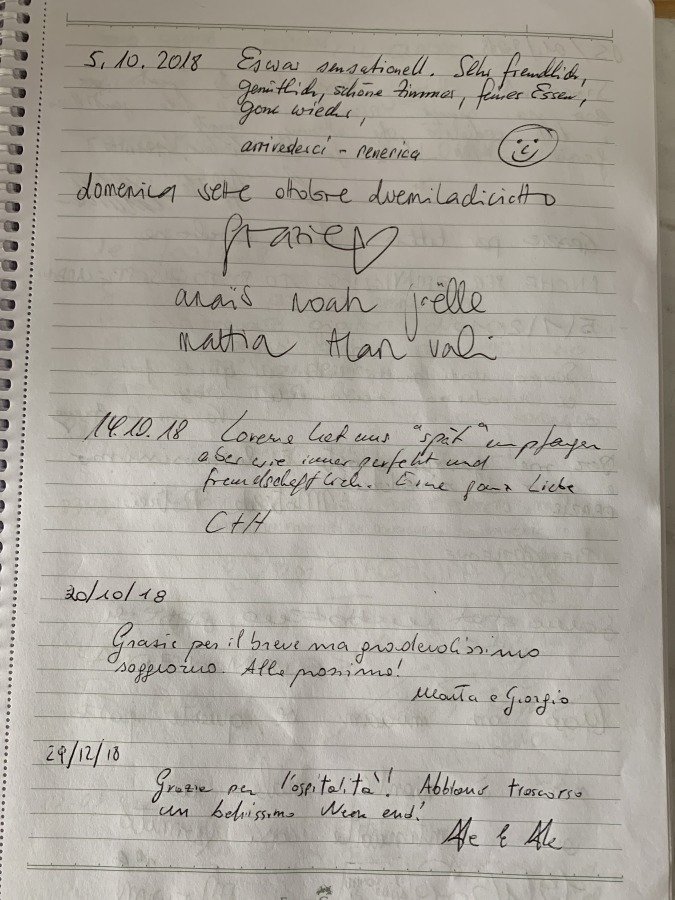 5.10.2018 Es war sensationell. Sehr freundlich,
gemütlich, schöne Zimmer, feines Essen,
gerne wieder,
arrivederci -
domenica sette ottobre duemiladiciotto
grazie
anaïs noah joëlle
mattia Alan vali
14.10.18 hat uns "spät" empfangen
aber wie immer perfekt und
freundschaftlich. Eine ganz Liebe
C+H
20/10/18
Grazie per il breve ma gradevolissimo
soggiorno. Alla prossima!
Marta e Giorgio
29/12/18
Grazie per l'ospitalità! Abbiamo trascorso
un bellissimo end!
Ale & Ale